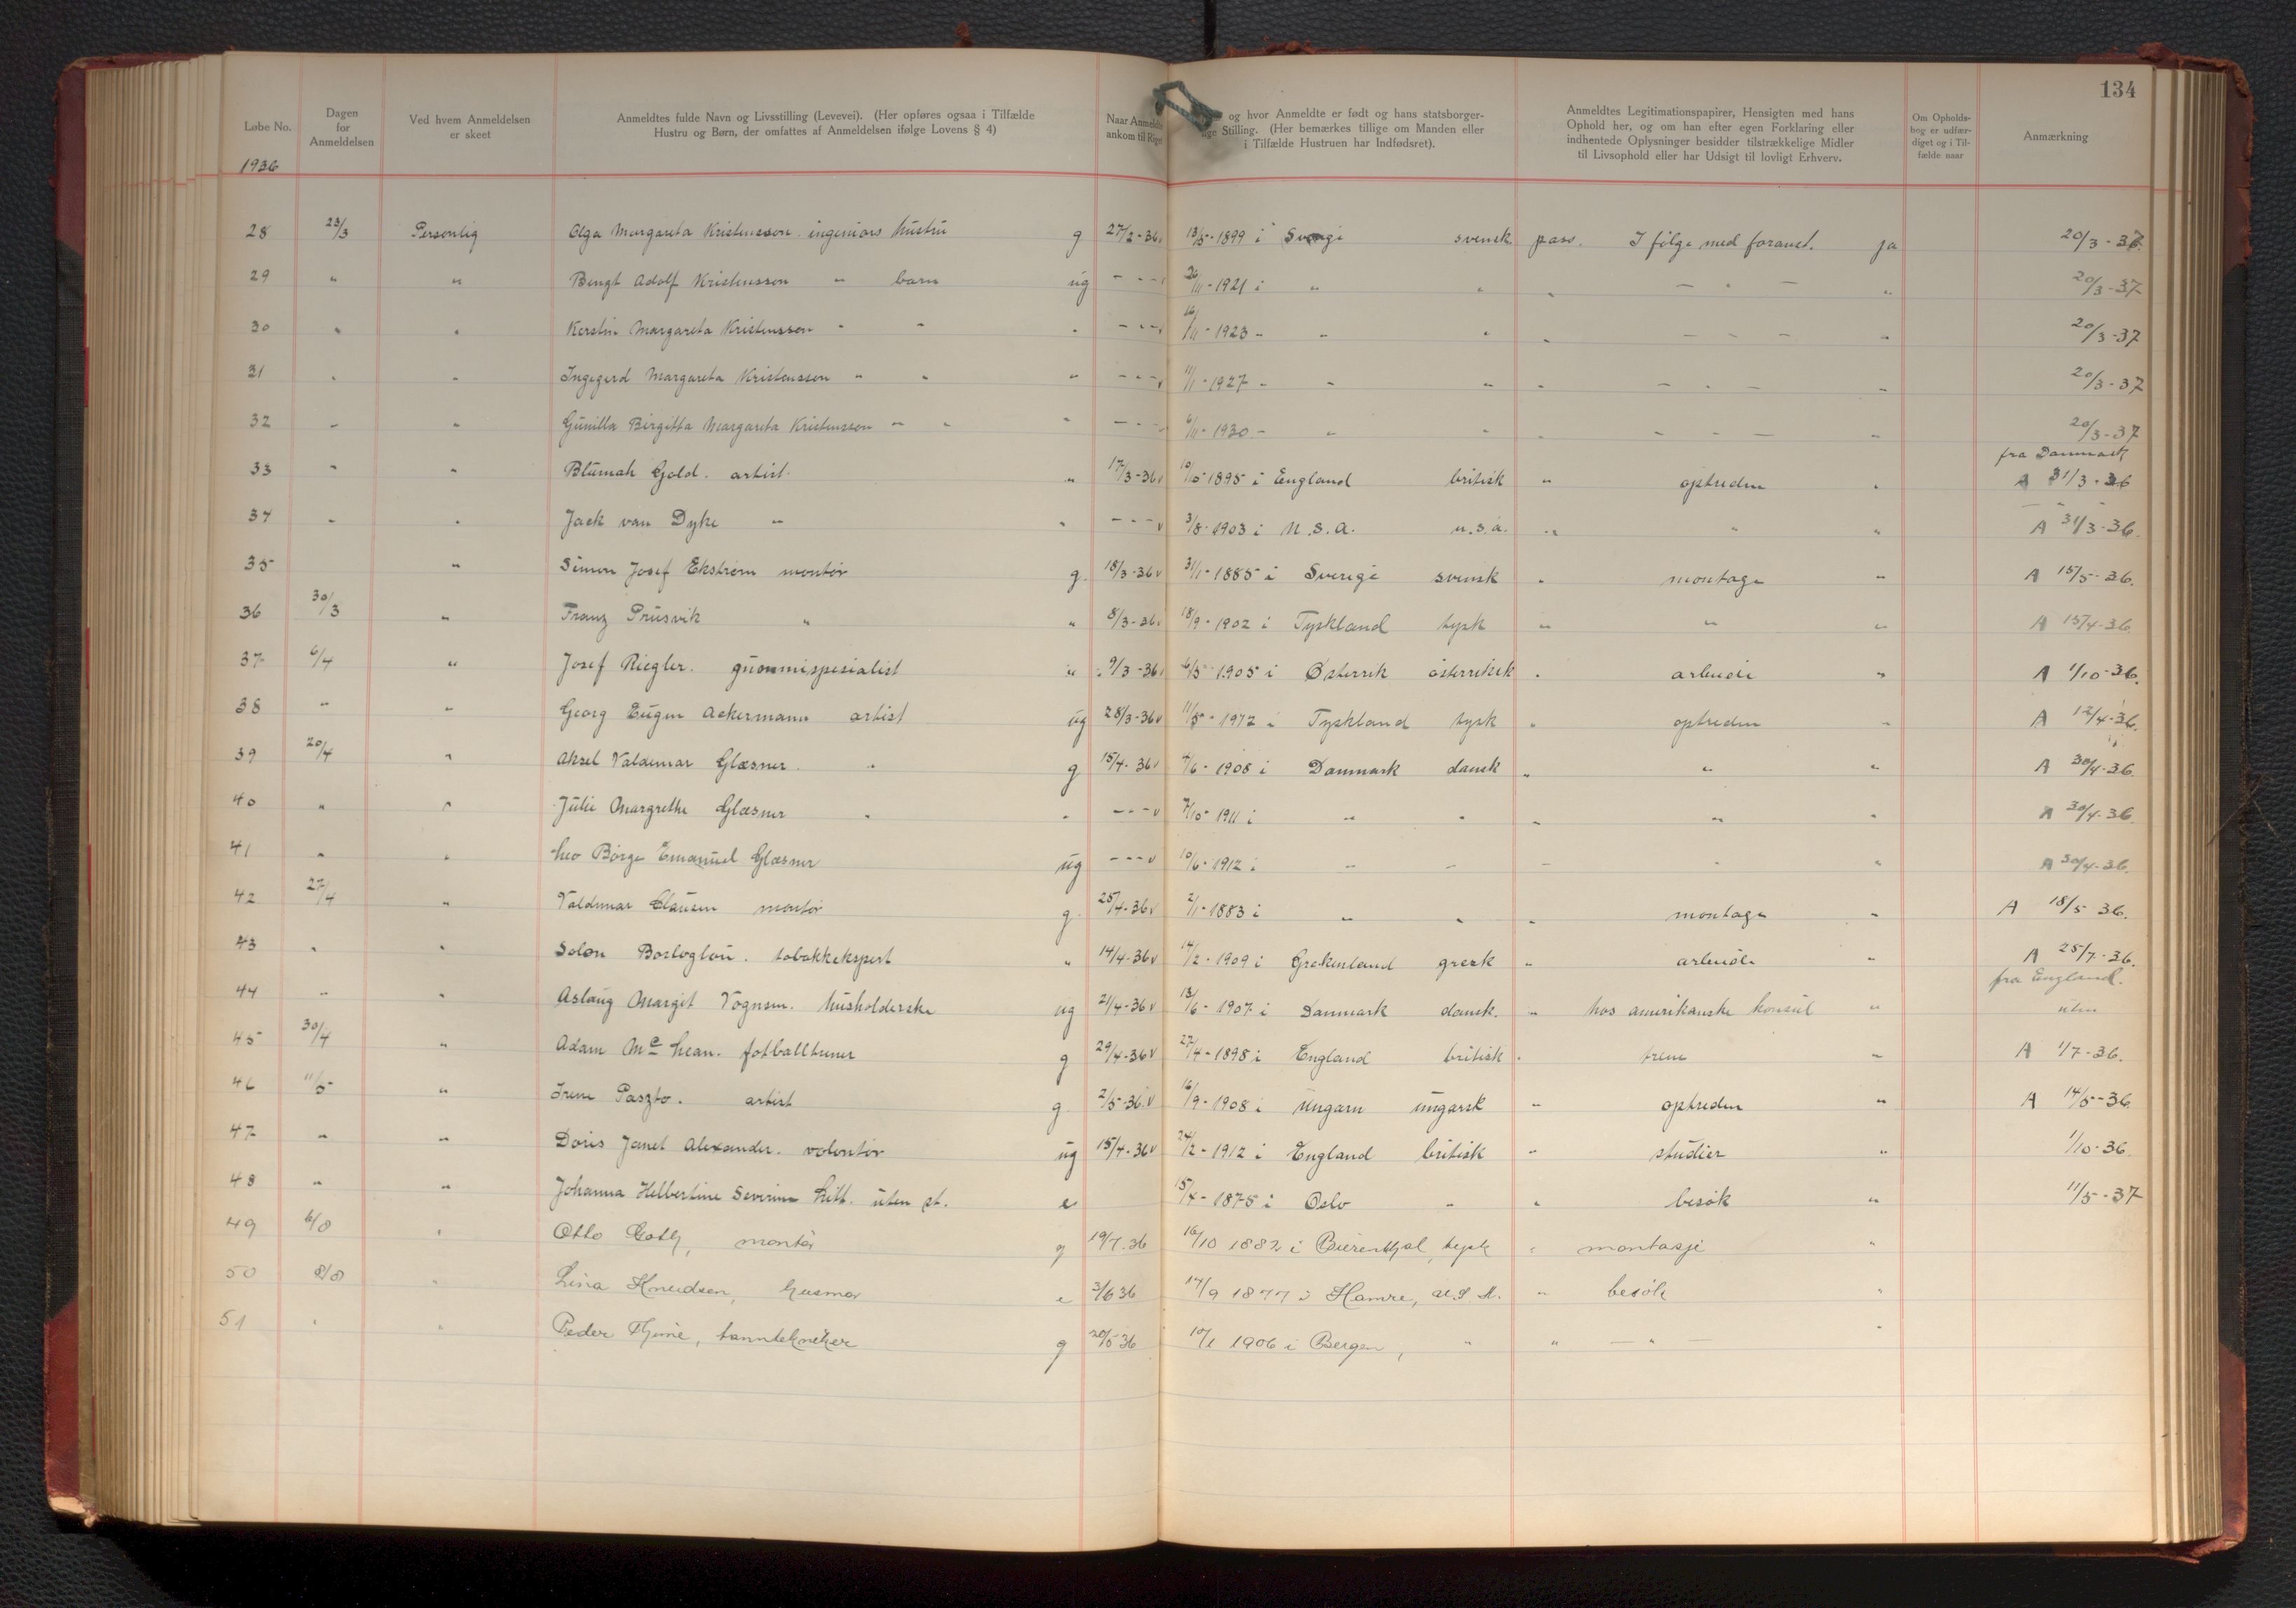 134
Løbe No.
Dagen for Anmeldelsen
Ved hvem Anmeldelsen er skeet
Anmeldtes fulde Navn og Livsstilling (Levevei). (Her opføres ogsaa i Tilfælde Hustru og Børn, der omfattes af Anmeldelsen ifølge Lovens § 4)
Naar Anmeldte ankom til Riget
og hvor Anmeldte er født og hans statsborgerlige Stilling. (Her bemærkes tillige om Manden eller i Tilfælde Hustruen har Indfødsret).
Anmeldtes Legitimationspapirer, Hensigten med hans Ophold her, og om han efter egen Forklaring eller indhentede Oplysninger besidder tilstrækkelige Midler til Livsophold eller har Udsigt til lovligt Erhverv.
Om Opholdsbog er udfærdiget og i Tilfælde naar
Anmærkning
1936
28 23/3 Personlig Olga Margareta Kristensson ingeniørs hustru g 27/2-36 v 13/5-1899 i Sverige svensk pass. I følge med foranst. ja 20/3-37
29 " " Bengt Adolf Kristensson " barn ug - - - 26/11-1921 i " " " - " - " 20/3-37
30 " " Kerstin Margareta Kristensson " " " - - - v 16/11-1923 - " " " - - - " 20/3-37
31 " " Ingegerd Margareta Kristensson " " " - - - v 11/1-1927 - " " " - " - " 20/3-37
32 " " Gunilla Birgitta Margareta Kristensson " " " - - - 6/11-1930 - " " " - - - " 20/3-37
33 " " Blumah Gold. artist " 17/3-36 v 10/10-1895 i England britisk " optreden " fra Danmark A 31/3-36
34 " " Jack van Dyke " " - - - v 3/8-1903 i U.S.A. u.s.a. " " " A 31/3-36.
35 " Simon Josef Ekstrøm montør g. 18/3-36 v 31/1-1885 i Sverige svensk " montage " A 15/5-36.
36 30/3 " Franz Prusvik " " 8/3-36 v 18/9-1902 i Tyskland tysk " " " A 15/4-36.
37 6/4 " Josef Riegler. gummispesialist " 9/3-36 v 6/5-1905 i Østerrik østerriksk " arbeide " A 1/10-36.
38 " " Georg Eugen Ackermann artist ug 28/3-36 v 11/5-1912 i Tyskland tysk " optreden " A 12/4-36.
39 20/4 " Aksel Valdemar Glæsner " g 15/4-36 v 4/6-1908 i Danmark dansk " " " A 30/4-36.
40 " " Julie Margrethe Glæsner " " - - - v 7/10-1911 i " " " " " A 30/4-36.
41 " " Leo Børge Emanuel Glæsner ug - - - v 10/6-1912 i " " " " " A 30/4-36.
42 27/4 " Valdemar Clausen montør g. 25/4-36 v 2/1-1883 i " " " montage " A 18/5 36.
43 " " Solon tobakkekspert " 14/4-36 v 14/2-1909 i Grekenland gresk " arbeide " A 25/7-36.
44 " " Aslaug Margit Vognsen. husholderske ug 21/4-36 v 13/6-1907 i Danmark dansk. " hos amerikanske konsul " fra England.
45 30/4 " Adam Mc Lean. fotballtrener g 29/4-36 v 27/4-1898 i England britisk " trene " A 1/7-36.
46 11/5 " Irene Paszto. artist g. 2/5-36 v 16/9-1908 i Ungarn ungarsk " optreden " A 14/5-36
47 " " Doris Janet Alexander. volontør ug 15/4-36 v 24/2-1912 i England britisk " studier " 1/10-36
48 " " Johanna Helbertine Severine Litt. uten st. e 15/4-1875 i Oslo " " besøk " 11/5-37
49 6/8 " Otto montør g 19/7.36 16/10 1882 i tysk " montasje "
50 8/8 " Lina Knudsen, husmor e 3/6 36 17/9 1877 i Hamre, " besøk "
51 " " Peder Hjeme, tanntekniker g 20/5 36 10/1 1906 i Bergen, " " - " - "